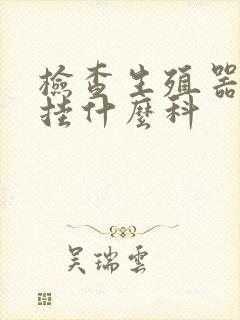 檢查生殖器
挂什麼科
吴瑞雲